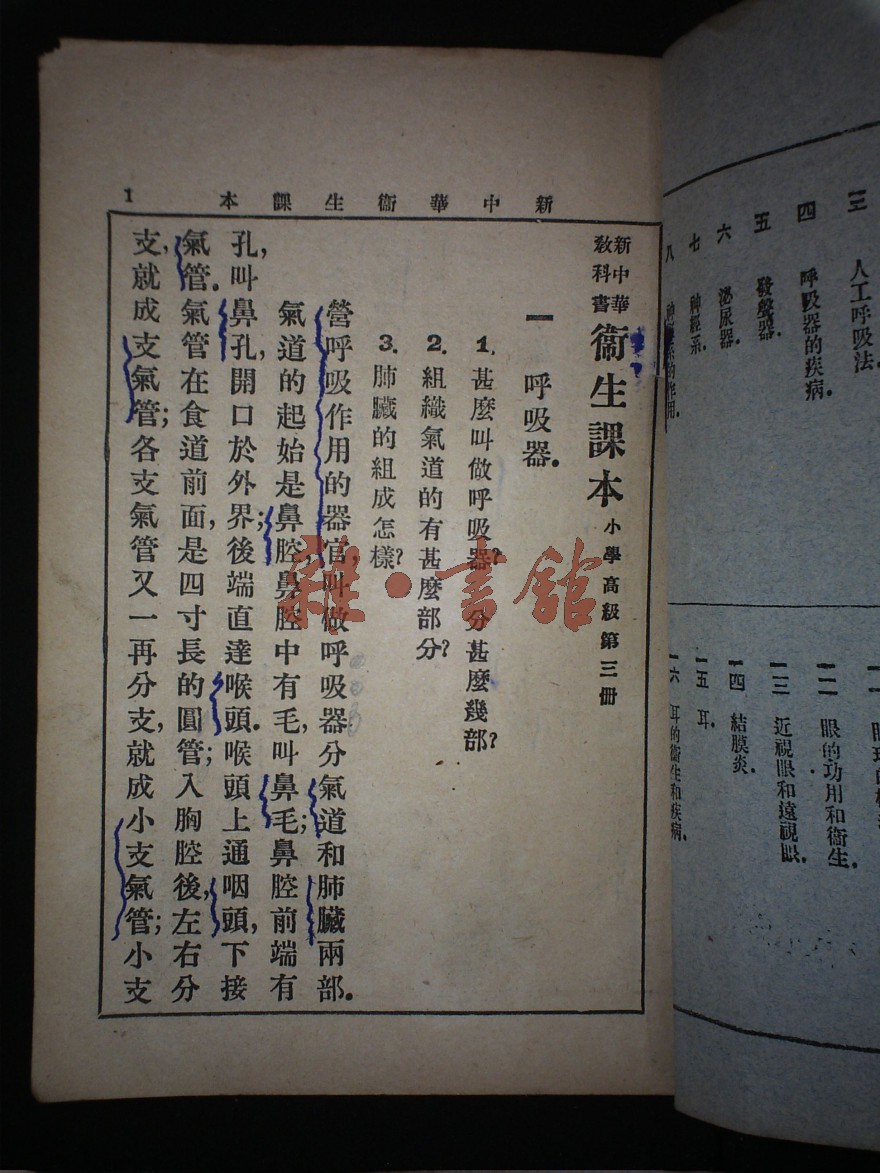 三 人工呼吸法.
四 呼吸器的疾病.
五 發聲器.
六 泌尿器.
七 神經系.
八 神經系的作用.
一二 眼的功用和衞生.
一三 近視眼和遠視眼.
一四 結膜炎.
一五 耳.
一六 耳的衞生和疾病.
新中華衞生課本
1
新中華
教科書
衞生課本 小學高級第三冊
一 呼吸器.
1. 甚麼叫做呼吸器?分甚麼幾部?
2. 組織氣道的有甚麼部分?
3. 肺臟的組成怎樣?
營呼吸作用的器官,叫做呼吸器分氣道和肺臟兩部.
氣道的起始是鼻腔,鼻腔中有毛,叫鼻毛;鼻腔前端有
孔,叫鼻孔,開口於外界;後端直達喉頭.喉頭上通咽頭,下接
氣管.氣管在食道前面,是四寸長的圓管;入胸腔後,左右分
支,就成支氣管;各支氣管又一再分支,就成小支氣管;小支
雜·書館